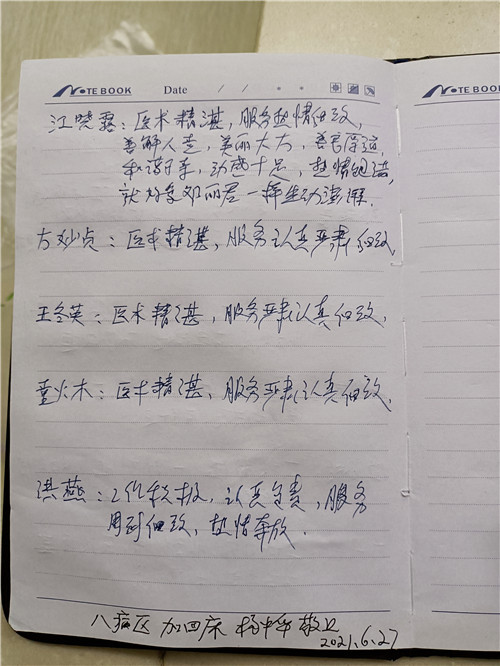 NOTE BOOK Date / /
江晓露：医术精湛，服务热情细致，
善解人意，美丽大方，善言
和蔼可亲，动感十足，热情饱满，
就好像邓丽君一样生动
方妙贞：医术精湛，服务认真严肃细致
王冬英：医术精湛，服务严肃认真细致，
童火木：医术精湛，服务严肃认真细致，
洪燕：工作积极，认真负责，服务
周到细致，热情奔放．
八病区 加四床 杨 敬上
2021.6.27
NOTE BOOK